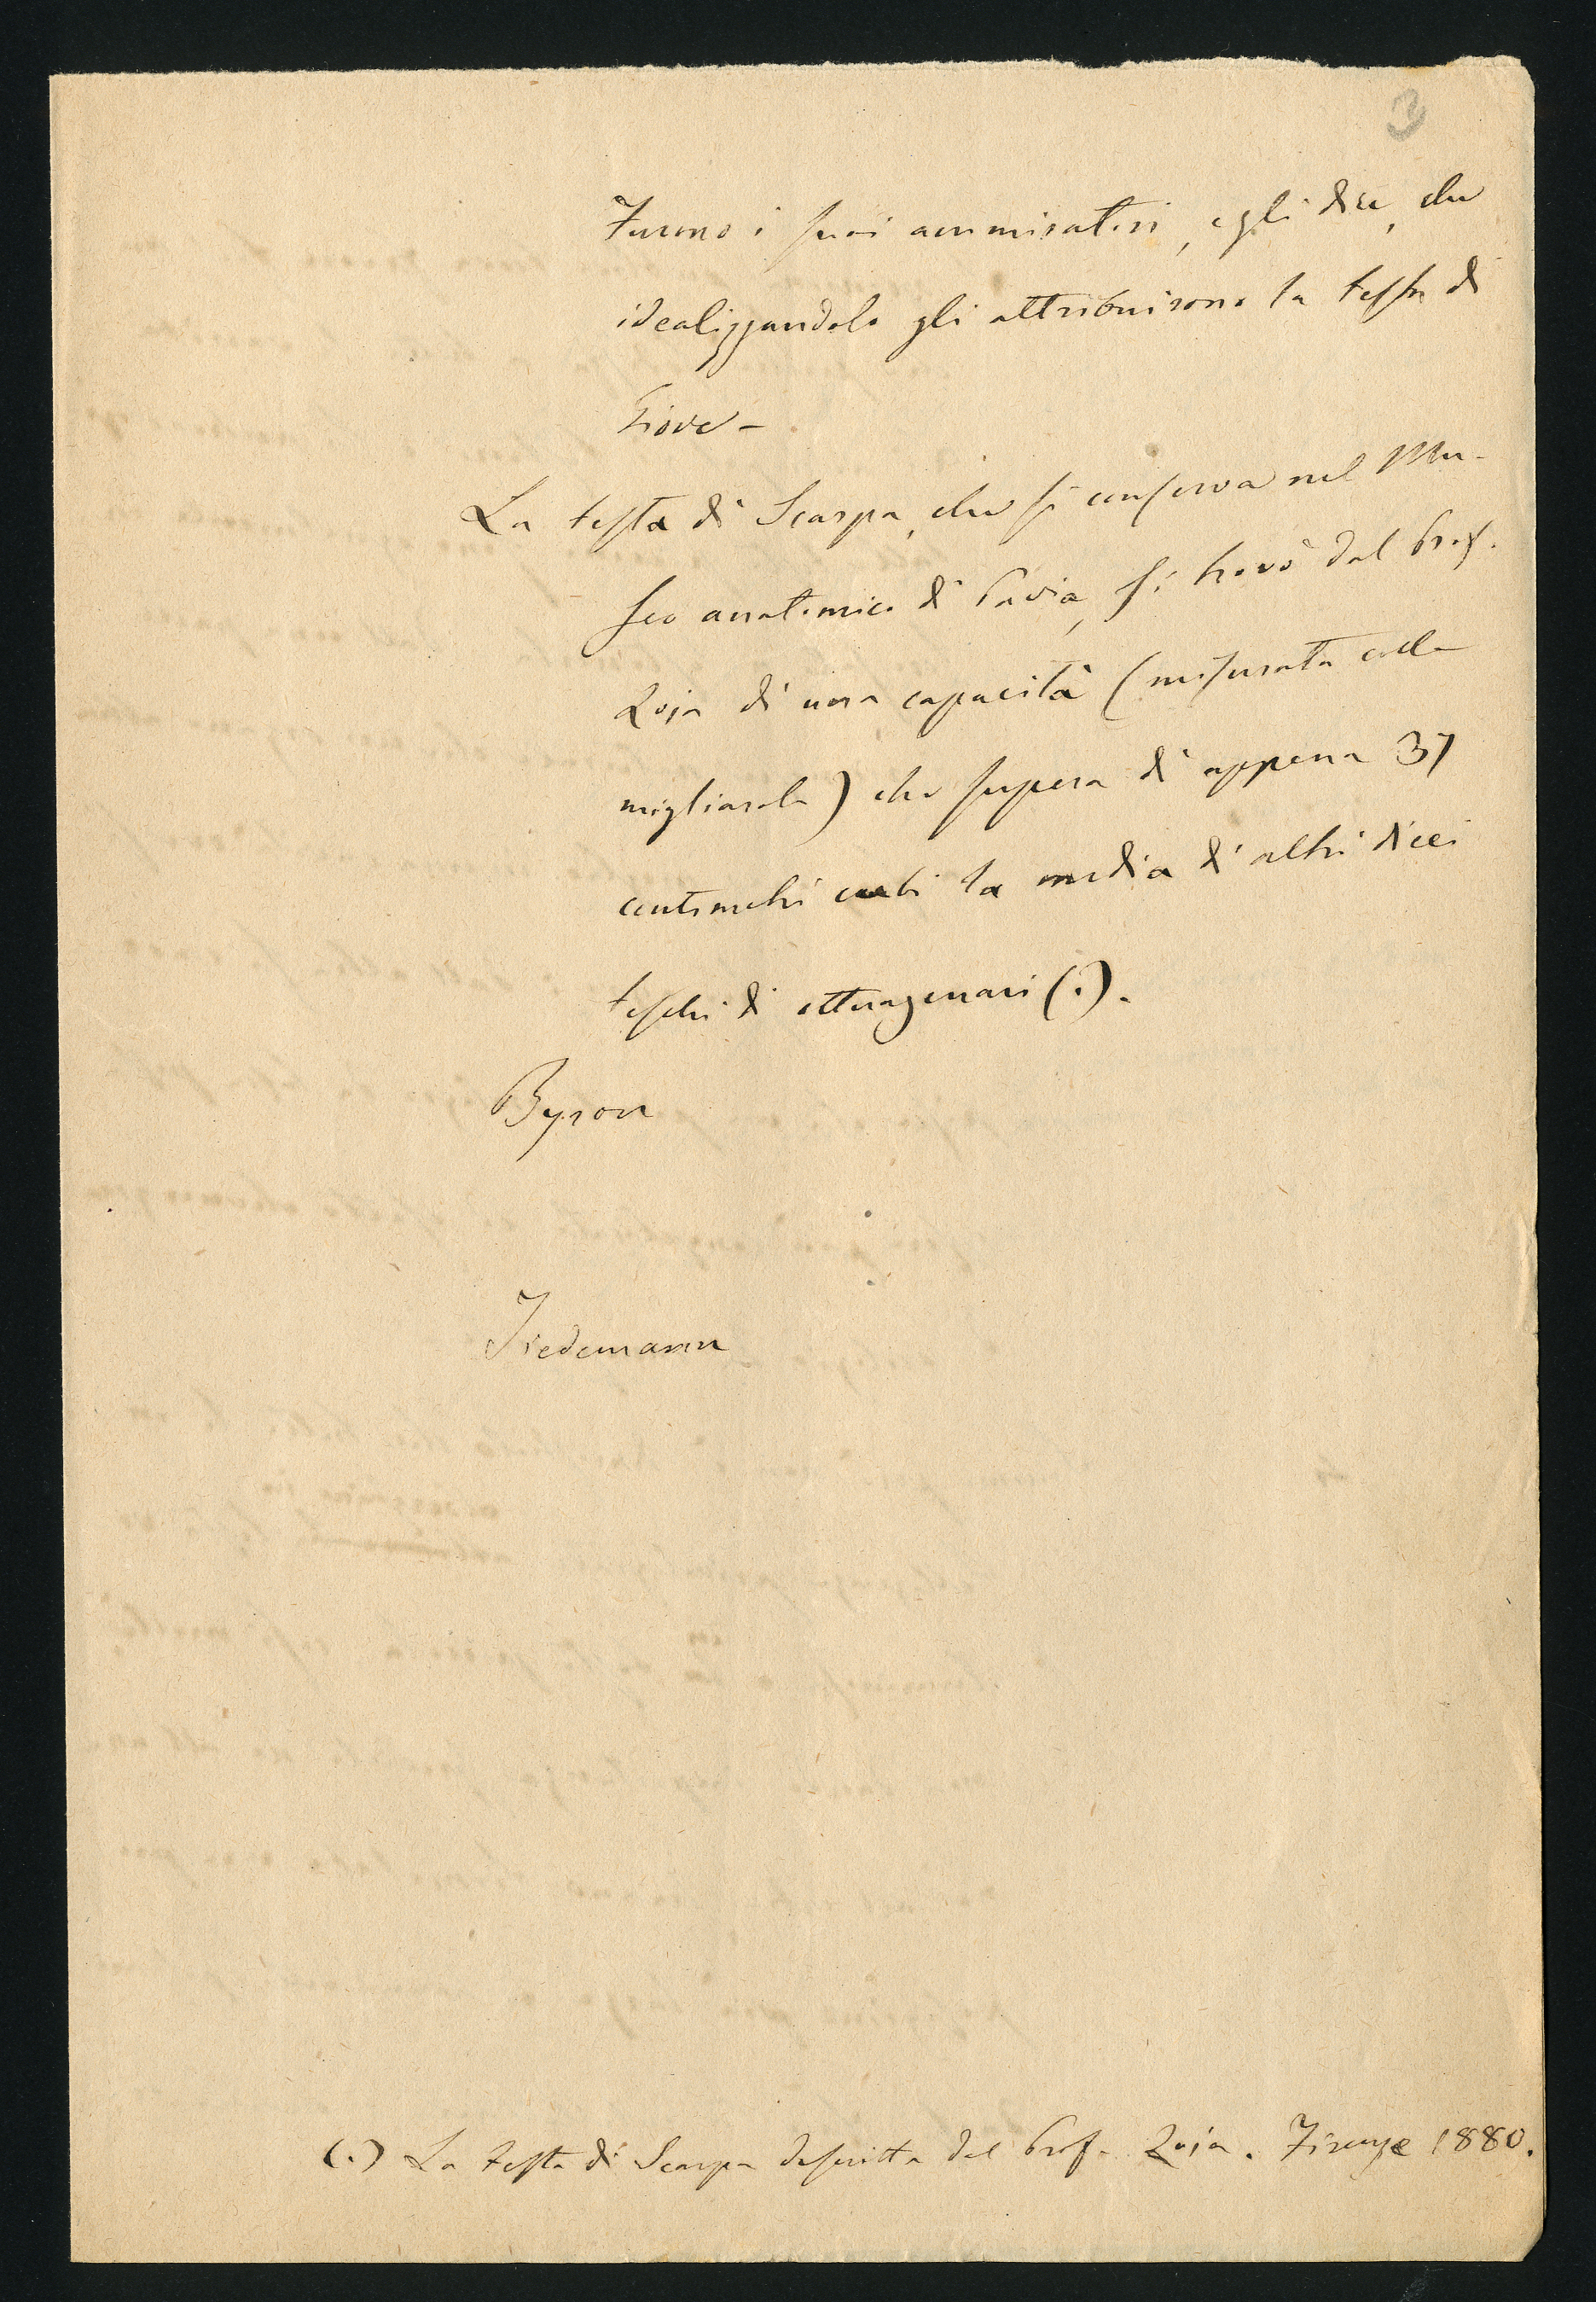 3
Furono i suoi ammiratori, egli dice, che
idealizzandolo gli attribuirono la testa di
Giove –
La testa di Scarpa, che si conserva nel Mu-
seo anatomico di Pavia, si trovò dal Prof.
Zoja di una capacità (misurata colla
migliarola) che supera di appena 37
centimetri cubi la media di altri dieci
teschi di ottuagenari (.).
Byron
Tiedemann
(.) La testa di Scarpa descritta dal Prof. Zoja. Firenze 1880.